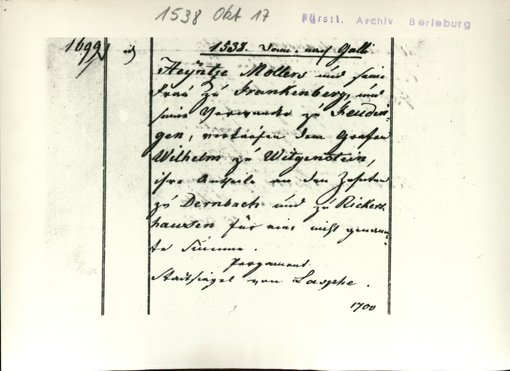 1538 Okt 17
Fürstl. Archiv Berleburg
1699
1538. Donn. nach Galli
Heyntze Mollers und seine
Frau zu Frankenberg, und
seine Verwandte zu Feudin-
gen, verkaufen dem Grafen
Wilhelm zu Witgenstein,
ihre Antheile an den Zehnten
zu Dernbach und zu Rickers-
hausen für eine nicht genann-
te Summe.
Pergament.
Stadtsiegel von Laasphe.
1700